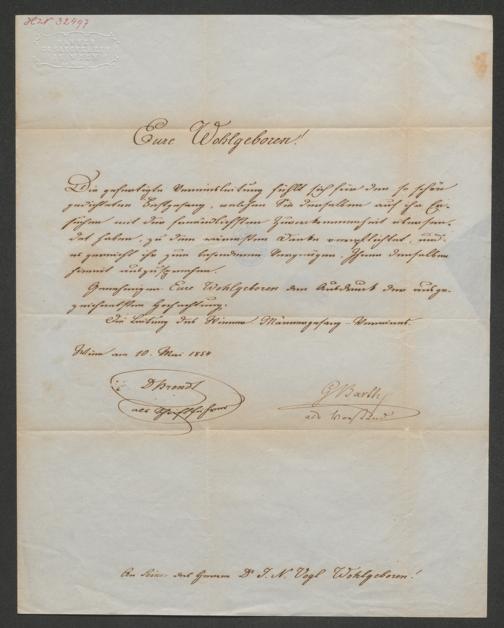 HIN 32497
Eure Wohlgeboren!
Die gefertigte Vereinsleitung fühlt sich für den so schön
gedichteten Festgesang, welchen Sie derselben auf ihr Er-
suchen mit der freundlichsten Zuvorkommenheit übersen-
det haben, zu dem wärmsten Danke verpflichtet, und
es gereicht ihr zum besonderen Vergnügen Ihnen denselben
hiemit auszusprechen.
Genehmigen Eure Wohlgeboren den Ausdruck der ausge-
zeichnetsten Hochachtung.
Die Leitung des Wiener Männergesang-Vereines.
Wien am 10. Mai 1854
als Schriftführer
G Barth
als Vorstand
An Seine des Herrn Dr J. N. Vogl Wohlgeboren!